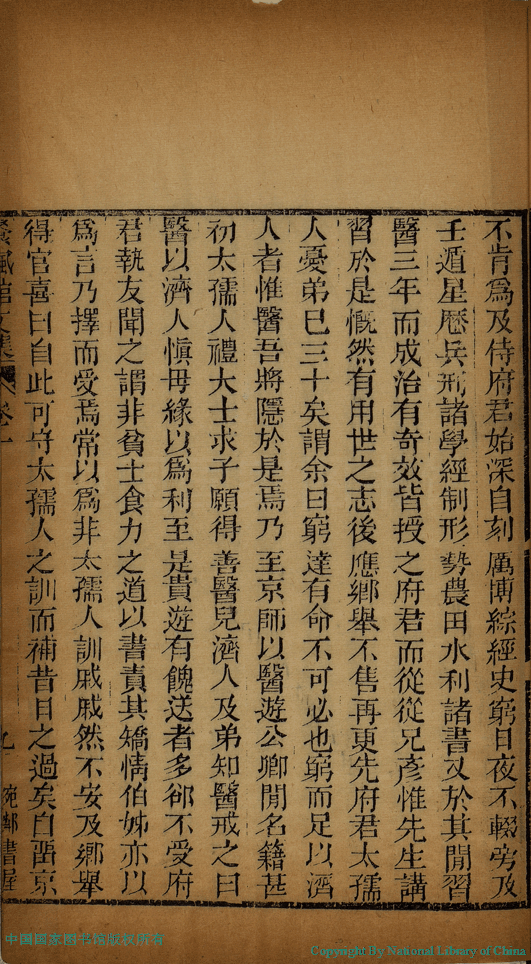 不肯爲及侍府君始深自刻厲博綜經史窮日夜不輟旁及
壬遁星厯兵刑諸學經制形勢農田水利諸書又於其閒習
醫三年而成治有奇效皆授之府君而從從兄彥惟先生講
習於是慨然有用世之志後應鄉舉不售再更先府君太孺
人憂弟巳三十矣謂余曰窮達有命不可必也窮而足以濟
人者惟醫吾將隱於是焉乃至京師以醫遊公卿閒名籍甚
初太孺人禮大士求子願得善醫兒濟人及弟知醫戒之曰
醫以濟人愼毋緣以爲利至是貴遊有餽送者多郤不受府
君執友聞之謂非貧士食力之道以書責其矯情伯姊亦以
爲言乃擇而受焉常以爲非太孺人訓戚戚然不安及鄉舉
得官喜曰自此可守太孺人之訓而補昔日之過矣自畱京
文集 卷一 九 宛鄰書屋
中国国家图书馆版权所有
Copyright By National Library of China